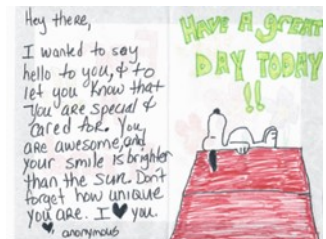 Hey there,
I wanted to say
hello to you, & to
let you know that
you are special &
cared for. You
are awesome, and
your smile is brighter
than the sun. Don't
forget how unique
you are. I ♥ you.
♥, anonymous
HAVE A GREAT
DAY TODAY
!!